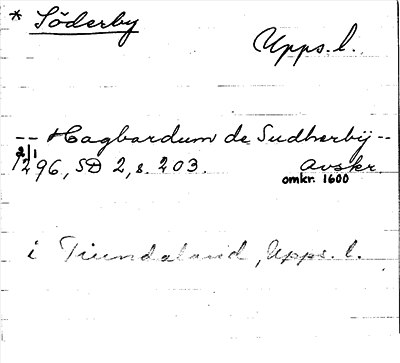 * Söderby
Upps. l.
-- Hagbardum de Sudherbij --
2/1
1296, SD 2, s. 203. Avskr.
omkr. 1600
i Tiundaland, Upps. l.